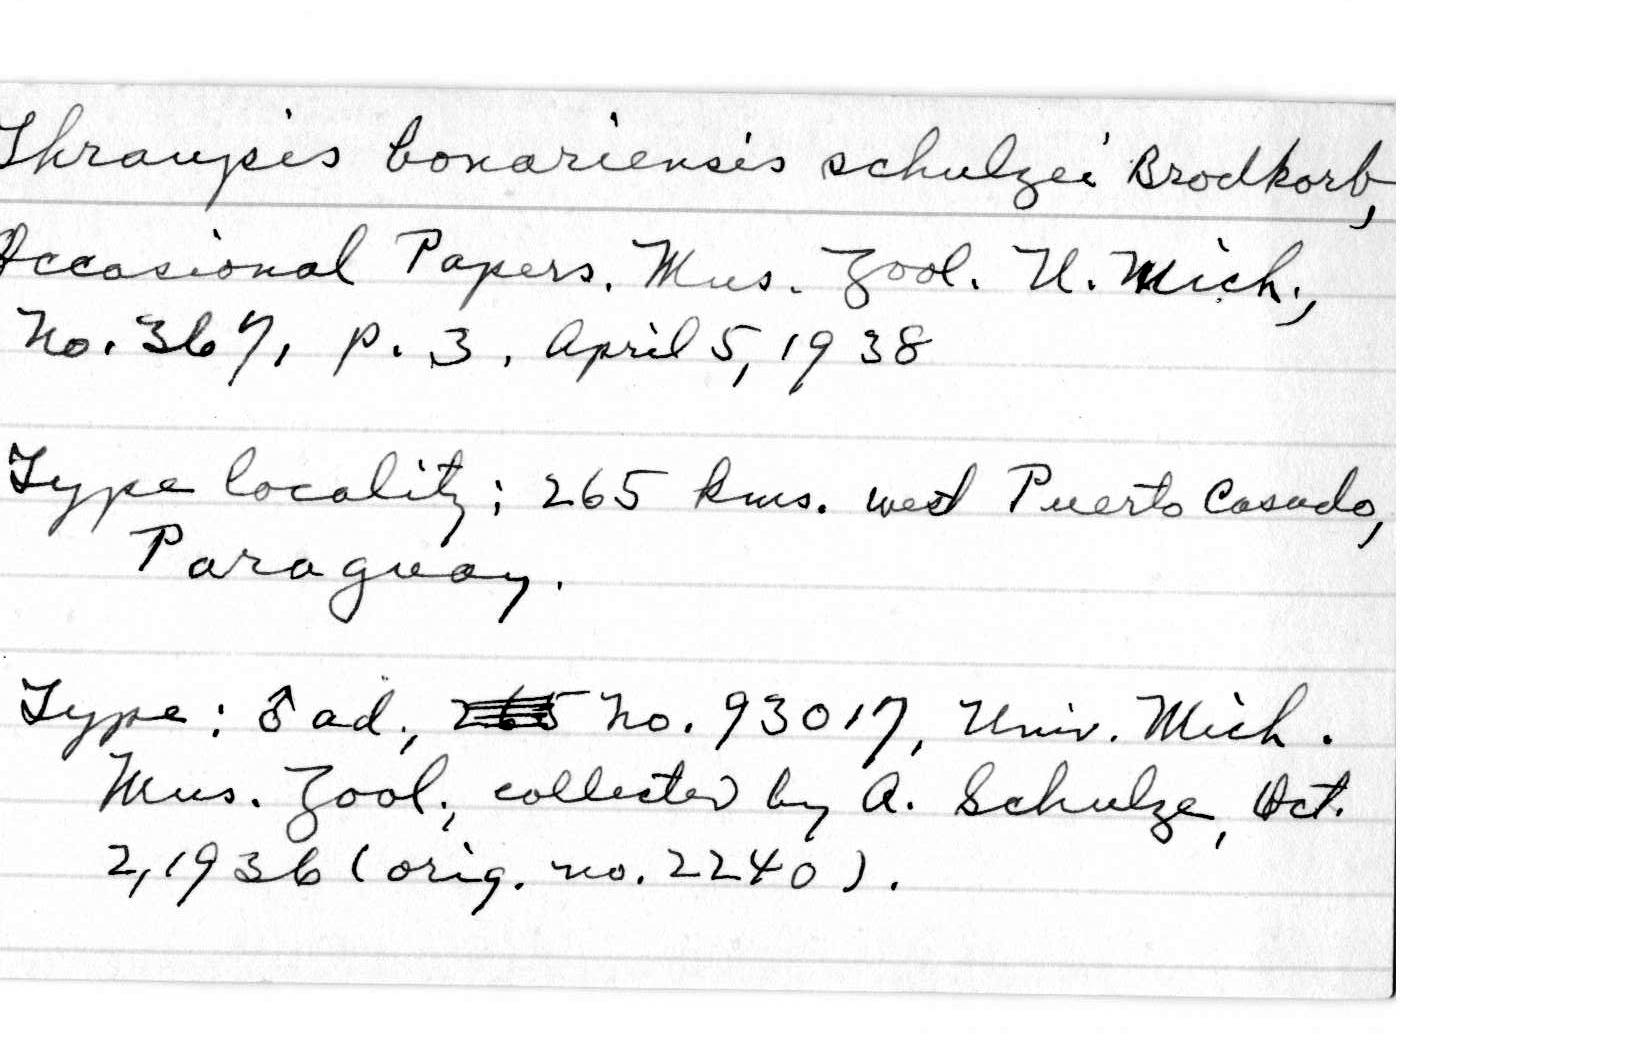 Thraupis bonariensis schulzei Brodkorb,
Occasional Papers. Mus. Zool. U. Mich.,
No. 367, p. 3, April 5, 1938
Type locality; 265 kms. west Puerto Casado,
Paraguay.
Type: ♂ ad., 265 No. 93017, Univ. Mich.
Mus. Zool., collected by A. Schulze, Oct.
2, 1936 (orig. no. 2240).